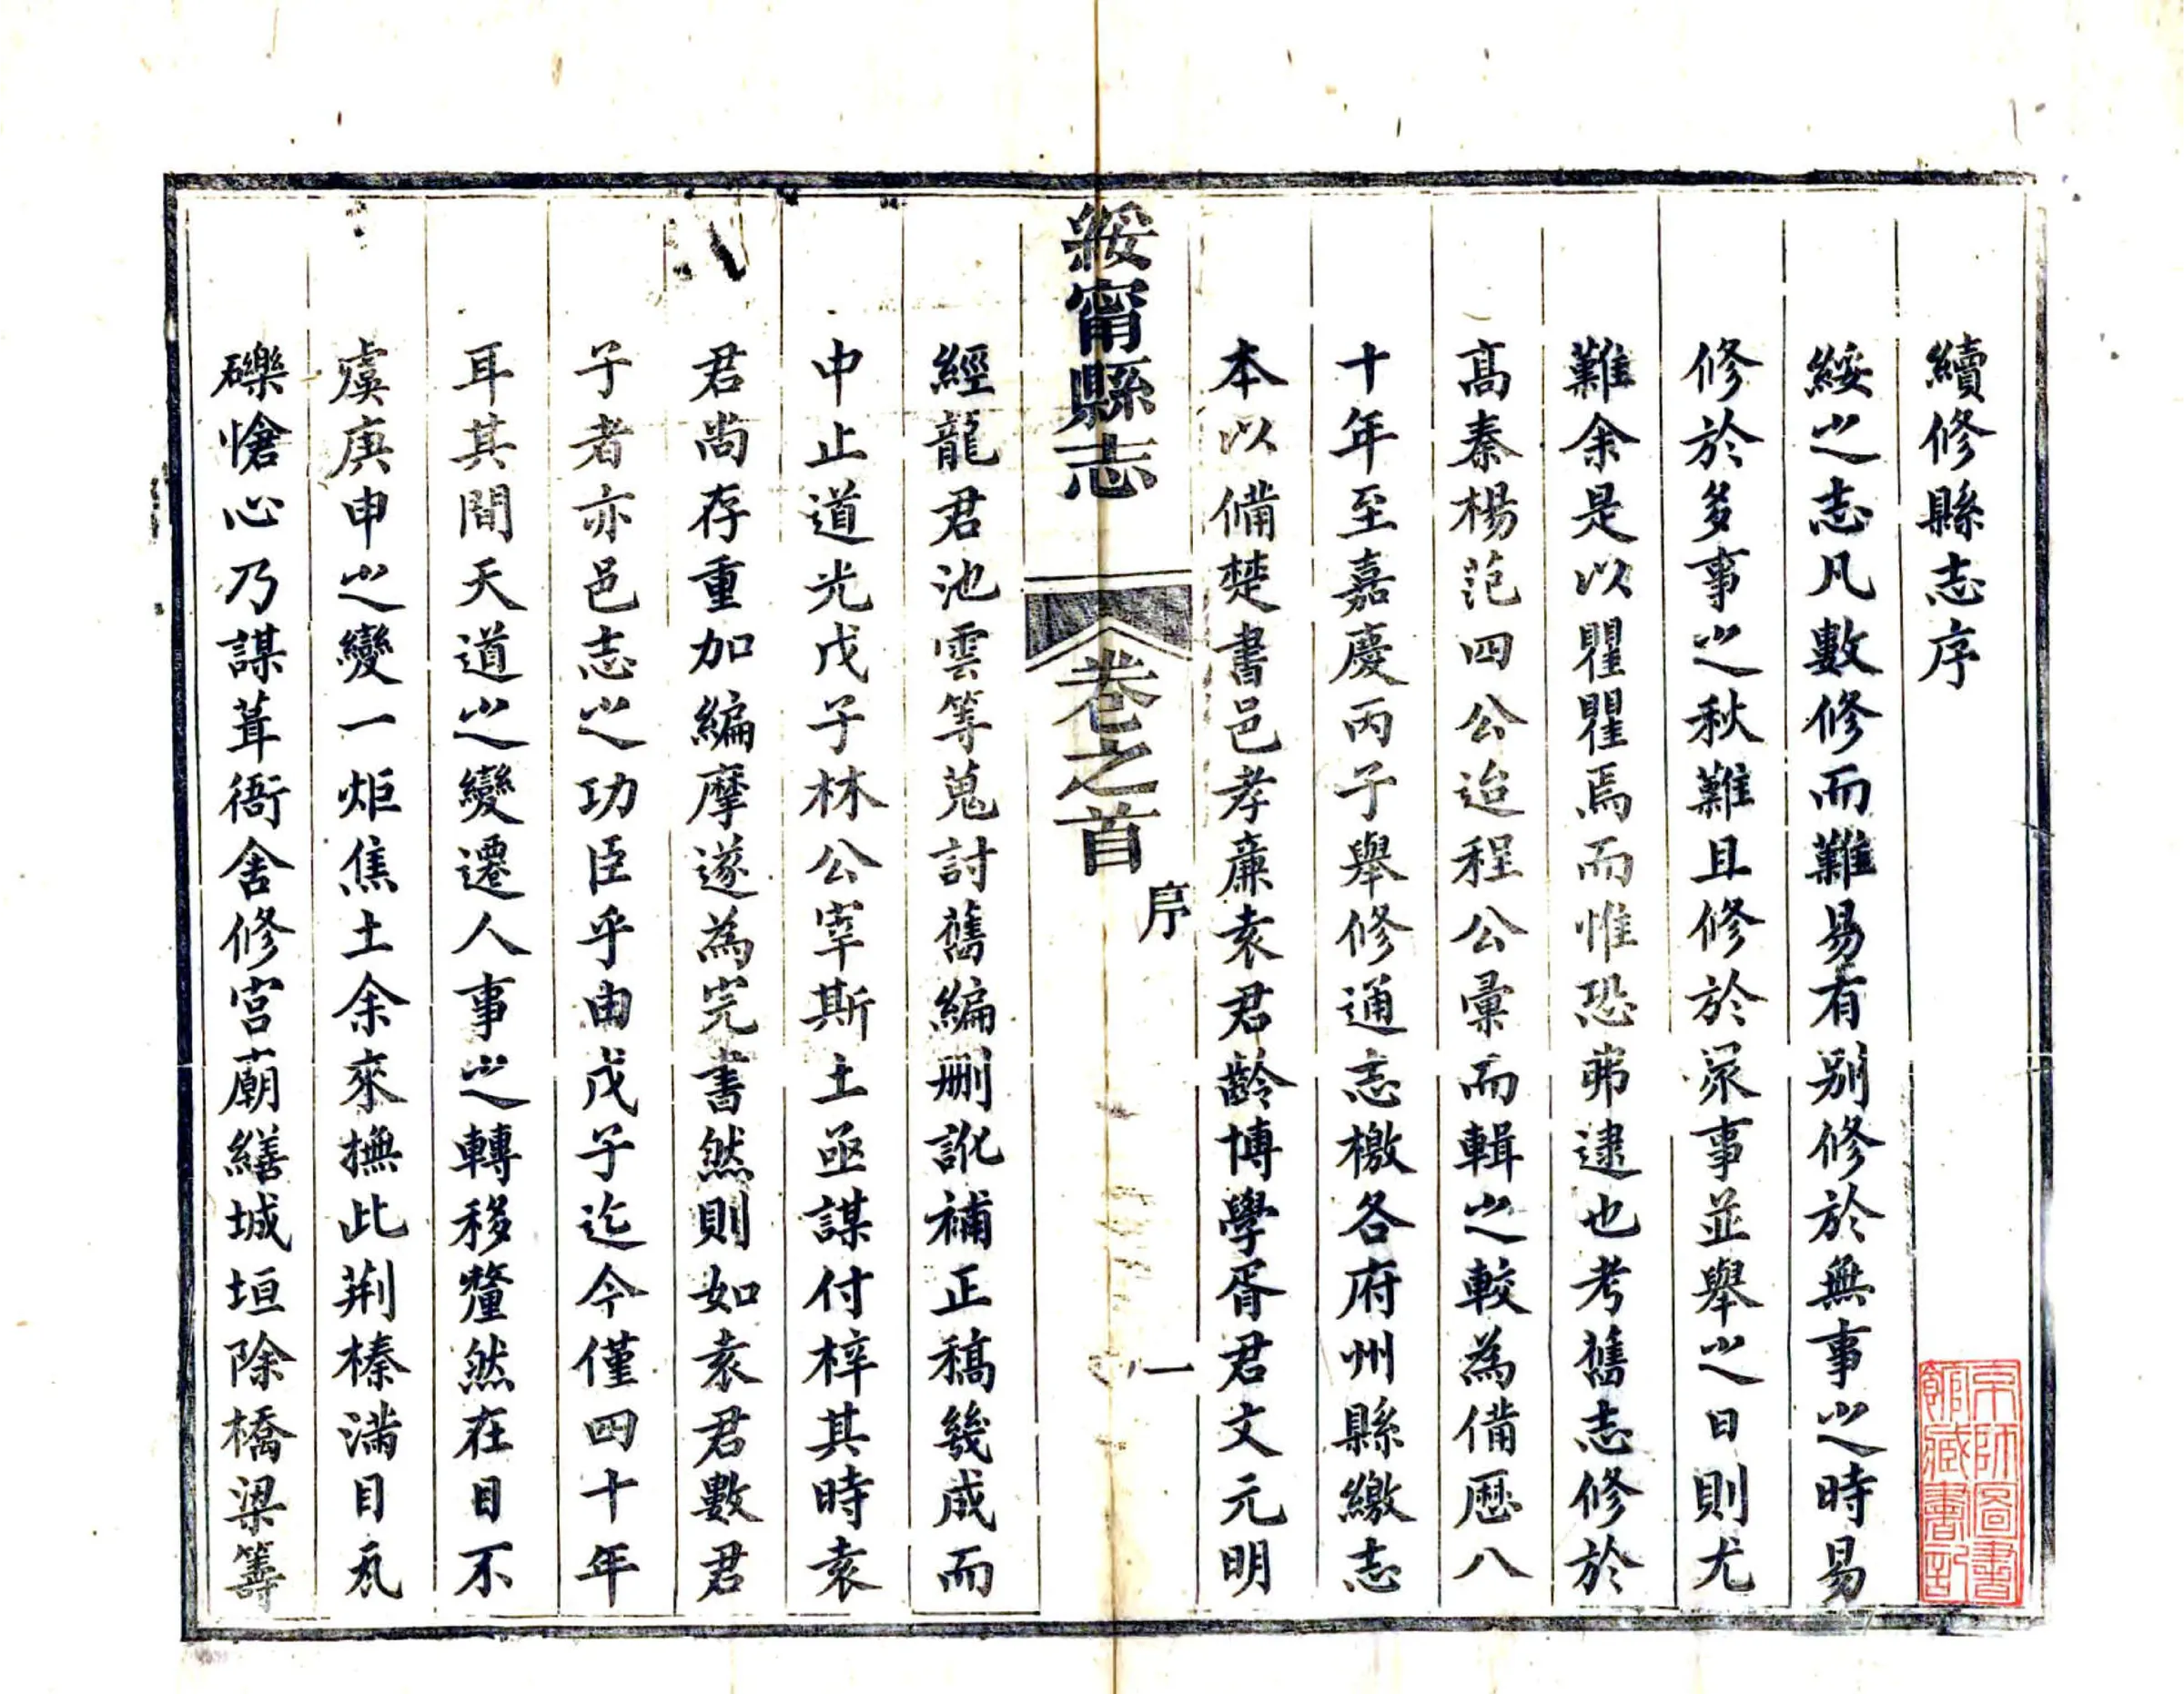 續修縣志序
綏之志凡數修而難易有別修於無事之時易
修於多事之秋難且修於眾事並舉之日則尤
難余是以瞿瞿焉而惟恐弗逮也考舊志修於
高秦楊范四公迨程公彙而輯之較為備歷八
十年至嘉慶丙子舉修通志檄各府州縣繳志
本以備楚書邑孝廉袁君齡博學胥君文元明
綏甯縣志
卷之首
序
一
經龍君池雲等蒐討舊編刪訛補正稿幾成而
中止道光戊子林公宰斯土亟謀付梓其時袁
君尚存重加編摩遂為完書然則如袁君數君
子者亦邑志之功臣乎由戊子迄今僅四十年
耳其間天道之變遷人事之轉移釐然在目不
虞庚申之變一炬焦土余來撫此荆榛滿目瓦
礫愴心乃謀葺衙舍修宮廟繕城垣除橋梁籌
京師圖書
館藏書記